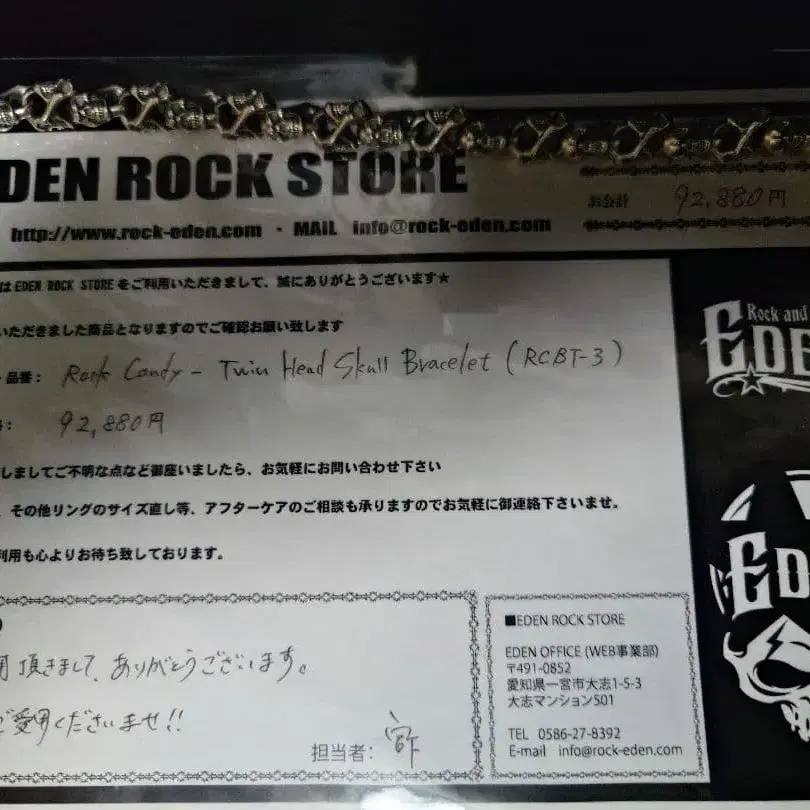 DEN ROCK STORE
http://www.rock-eden.com ・ MAIL info@rock-eden.com
お会計 92,880円
はEDEN ROCK STOREをご利用いただきまして、誠にありがとうございます★
いただきました商品となりますのでご確認お願い致します
品番: Rock Candy - Twin Head Skull Bracelet (RCBT-3)
: 92,880円
しましてご不明な点など御座いましたら、お気軽にお問い合わせ下さい
、その他リングのサイズ直し等、アフターケアのご相談も承りますのでお気軽に御連絡下さいませ。
利用も心よりお待ち致しております。
頂きまして、ありがとうございます。
ご愛用くださいませ!!
担当者:
■EDEN ROCK STORE
EDEN OFFICE (WEB事業部)
〒491-0852
愛知県一宮市大志1-5-3
大志マンション501
TEL 0586-27-8392
E-mail info@rock-eden.com
Rock and
EDE
ED